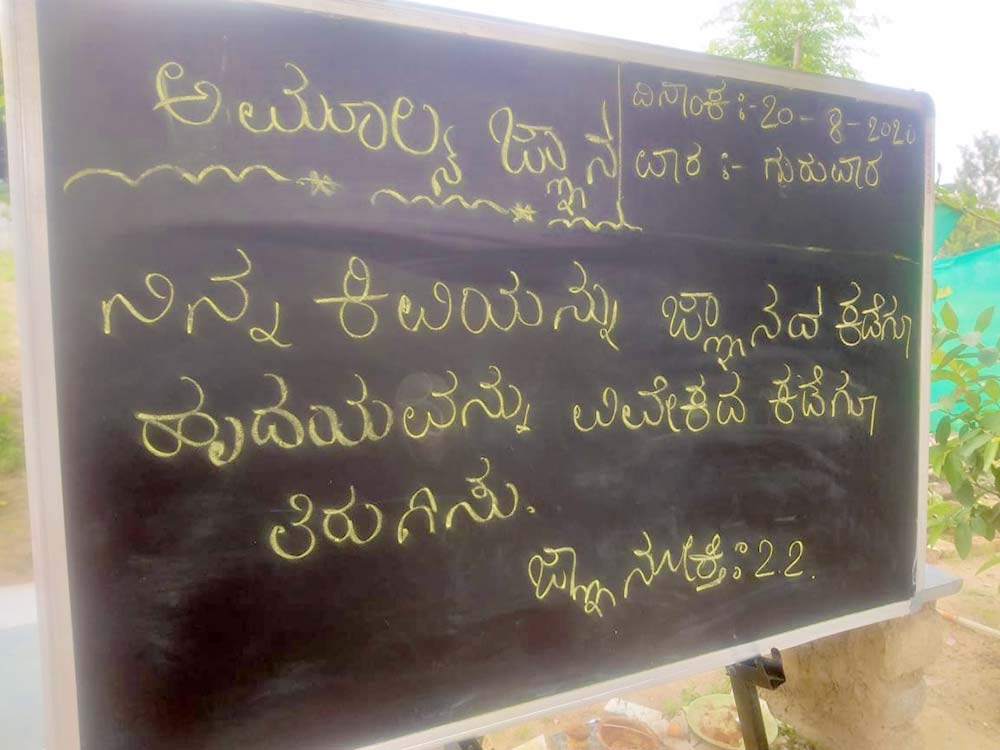 ಅಮೂಲ್ಯ ಜ್ಞಾನ
ದಿನಾಂಕ :- 20 - 8 - 2020
ವಾರ :- ಗುರುವಾರ
ನಿನ್ನ ಕಿವಿಯನ್ನು ಜ್ಞಾನದ ಕಡೆಗೂ
ಹೃದಯವನ್ನು ವಿವೇಕದ ಕಡೆಗೂ
ತಿರುಗಿಸು.
ಜ್ಞಾನೋಕ್ತಿ : 2.2.